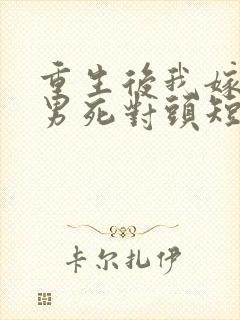 重生後我嫁
男死對頭短
卡尔扎伊